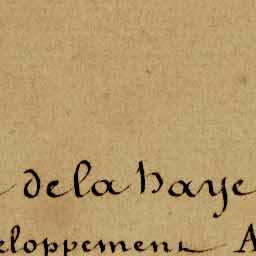 de la haye
eloppement A